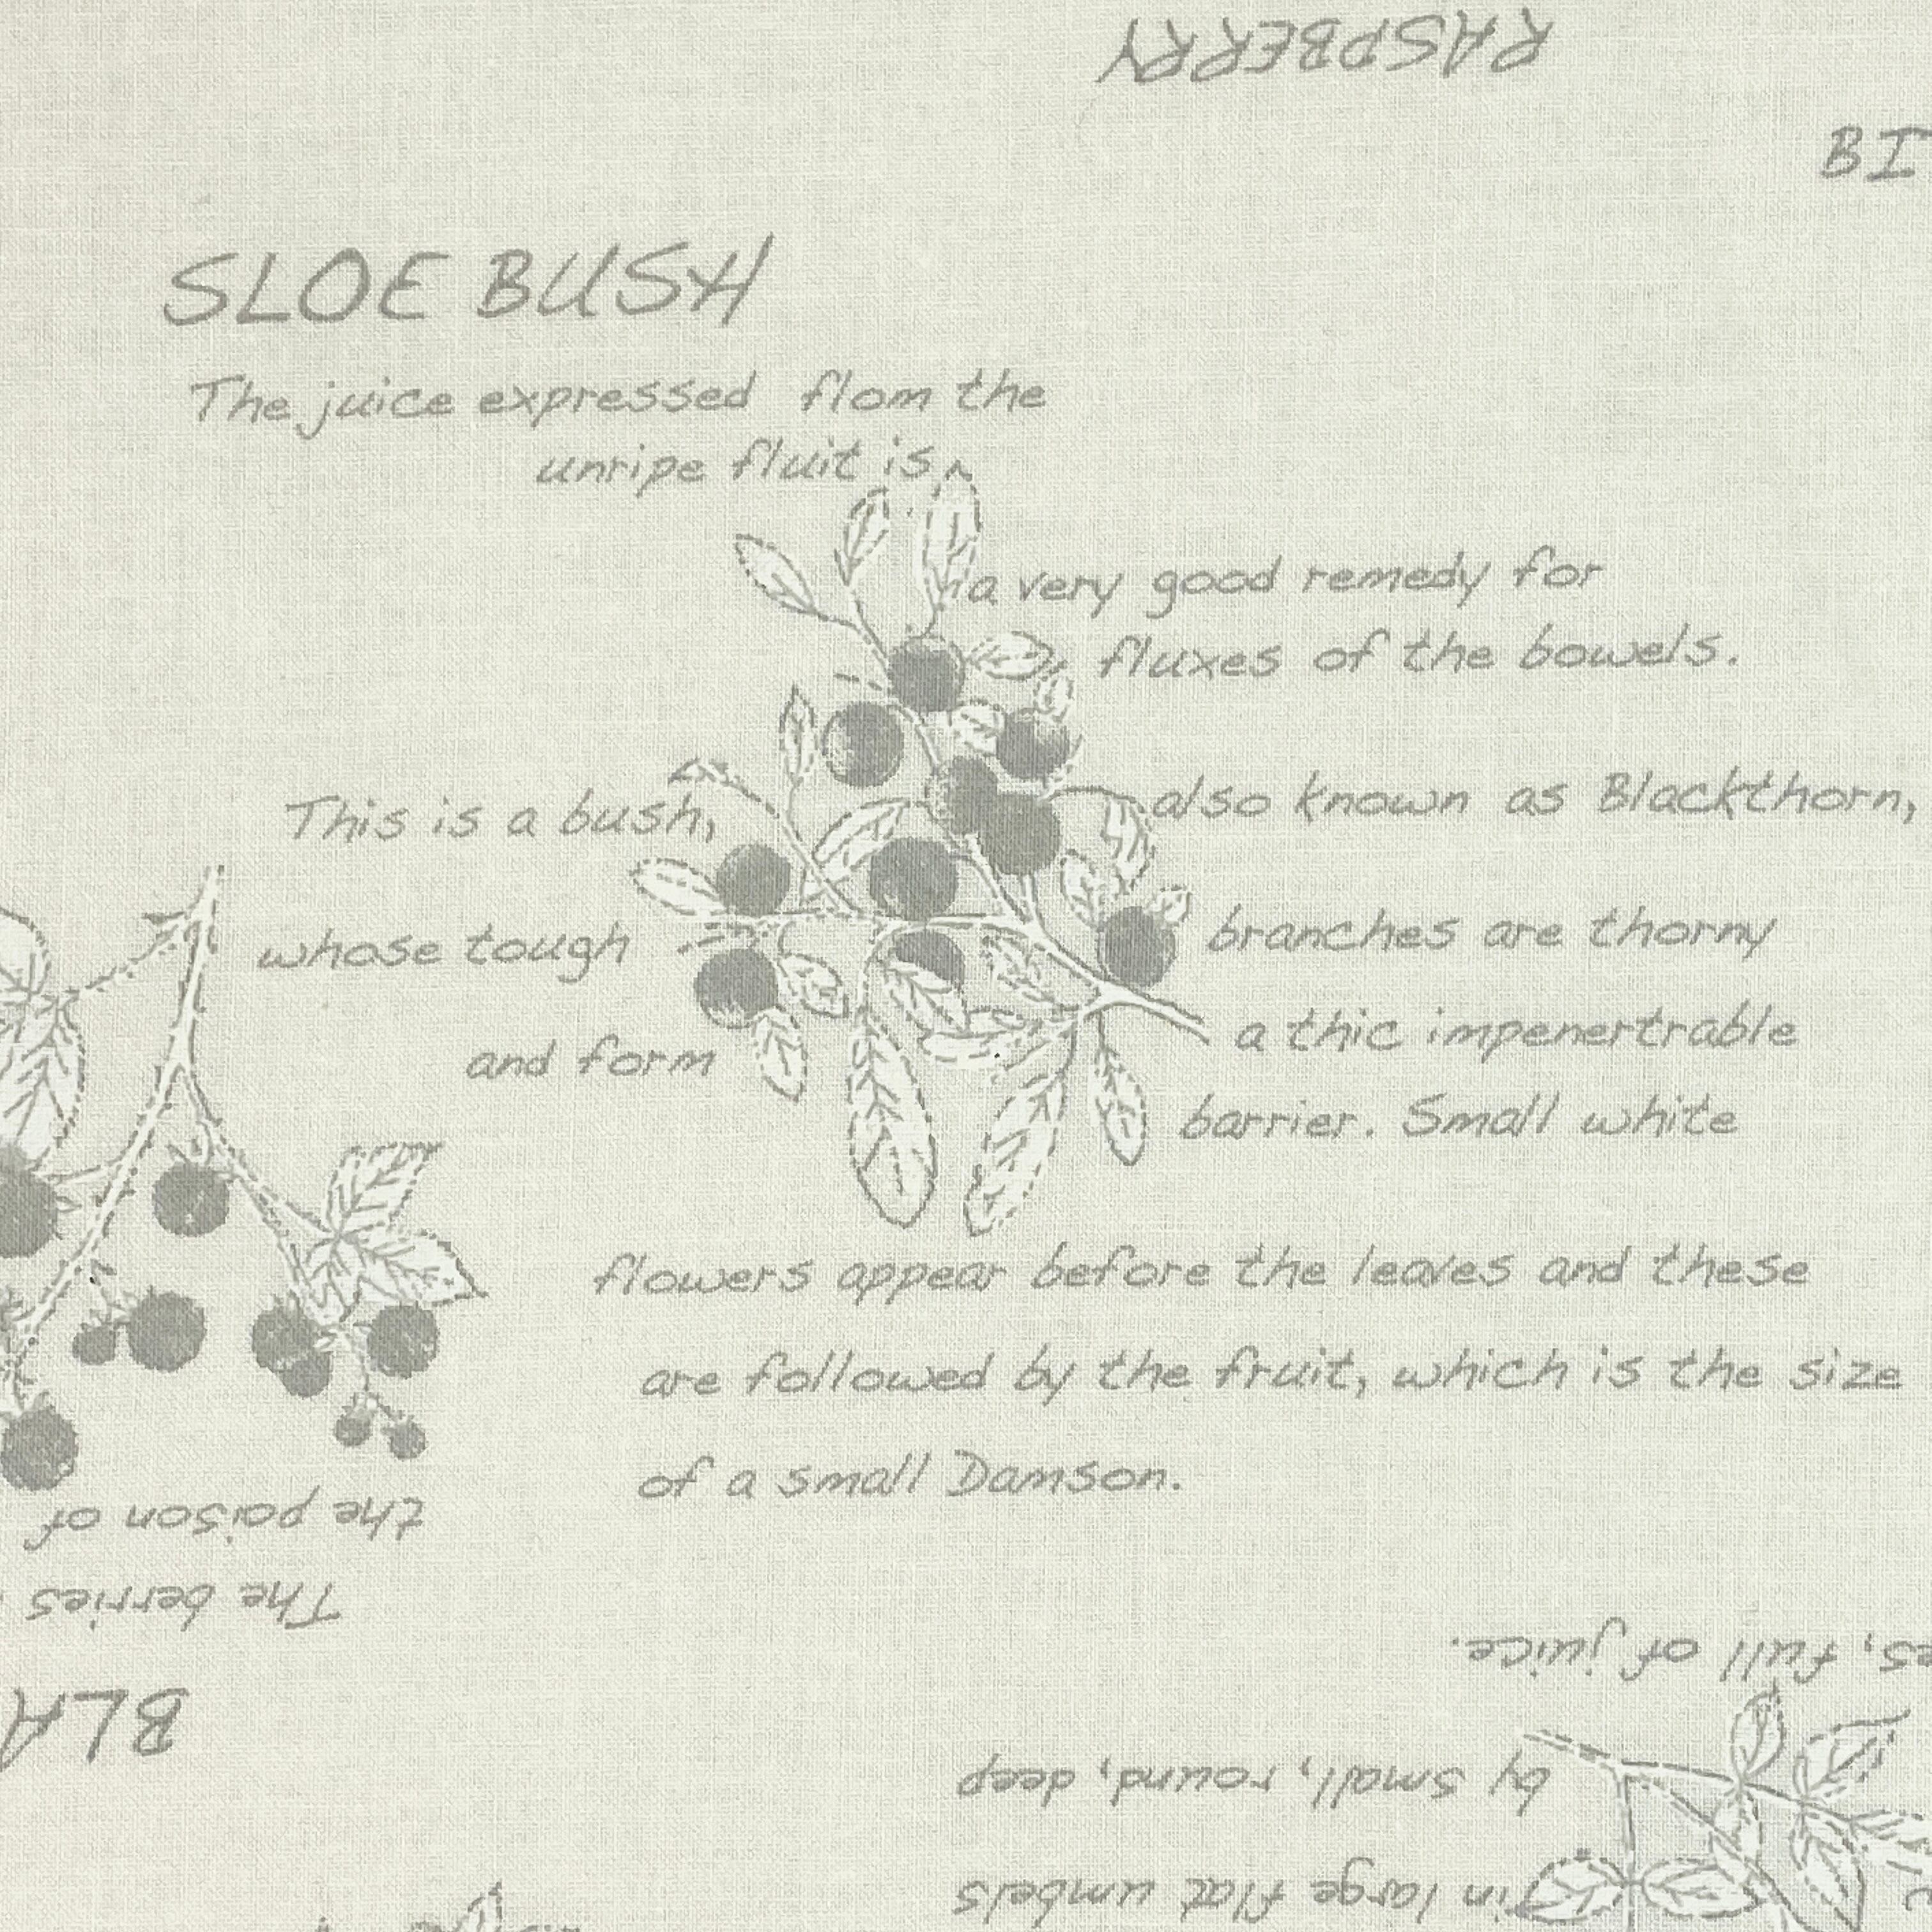 RASPBERRY
BI
SLOE BUSH
The juice expressed flom the
unripe fluit is
a very good remedy for
fluxes of the bowels.
This is a bush, also known as Blackthorn,
whose tough branches are thorny
and form a thic impenertrable
barrier. Small white
flowers appear before the leaves and these
are followed by the fruit, which is the size
of a small Damson.
the poison of
The berries
BLA
es, full of juice.
by small, round, deep
in large flat umbels